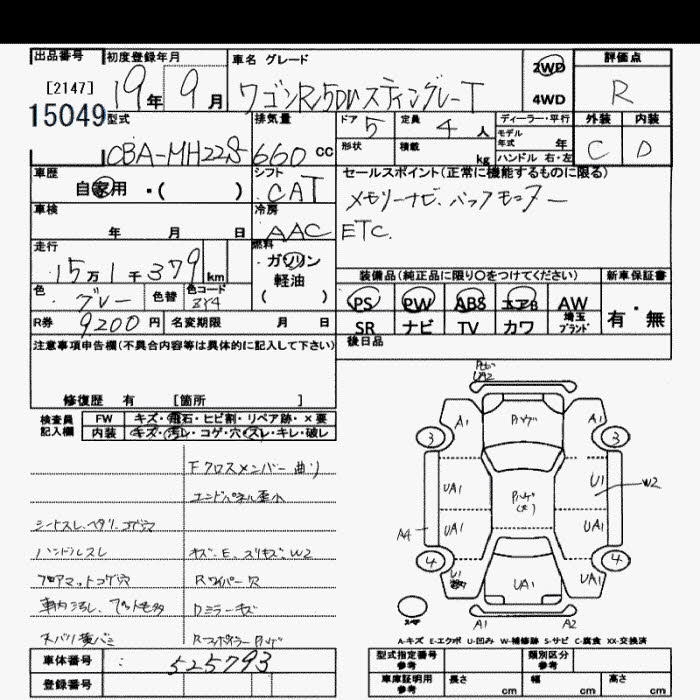 出品番号 初度登録年月 車名 グレード 評価点
[2147] 19年 9月 ワゴンR スティングレーT 2WD 4WD R
15049 型式 排気量 ドア 5 定員 4人 ディーラー・平行 外装 内装
CBA-MH22S 660 cc 形状 積載 kg モデル年式 年 ハンドル 右・左 C D
車歴 シフト セールスポイント(正常に機能するものに限る)
自家用 ・( ) CAT メモリーナビ.バックモニター
車検 冷房 ETC.
年 月 日 AAC
走行 燃料
15万1千379km ガソリン 軽油 ( )
装備品(純正品に限り○をつけてください) 新車保証書
色 グレー 色替 色コード ZY4 PS PW ABS エアB AW 有・無
R券 9200円 名変期限 月 日 SR ナビ TV カワ 埼玉ブランド
注意事項申告欄(不具合内容等は具体的に記入して下さい) 後日品
修復歴 有 [箇所 ]
検査員記入欄 FW キズ・飛石・ヒビ割・リペア跡・×要
内装 キズ・汚レ・コゲ・穴・スレ・キレ・破レ
Fクロスメンバー曲り
エンドパネル歪み
ハンドルスレ
フロアマットコゲ穴 Rワイパー欠
Dミラーキズ
A1 A1
3 3
UA1 U1 W2
UA1 UA1
A4
4 4
U1 UA1 UA1
A1 A2
A-キズ E-エクボ U-凹み W-補修跡 S-サビ C-腐食 XX-交換済
車体番号 : 525793 型式指定番号 参考 類別区分 参考
登録番号 車庫証明用 参考 長さ cm 幅 cm 高さ cm